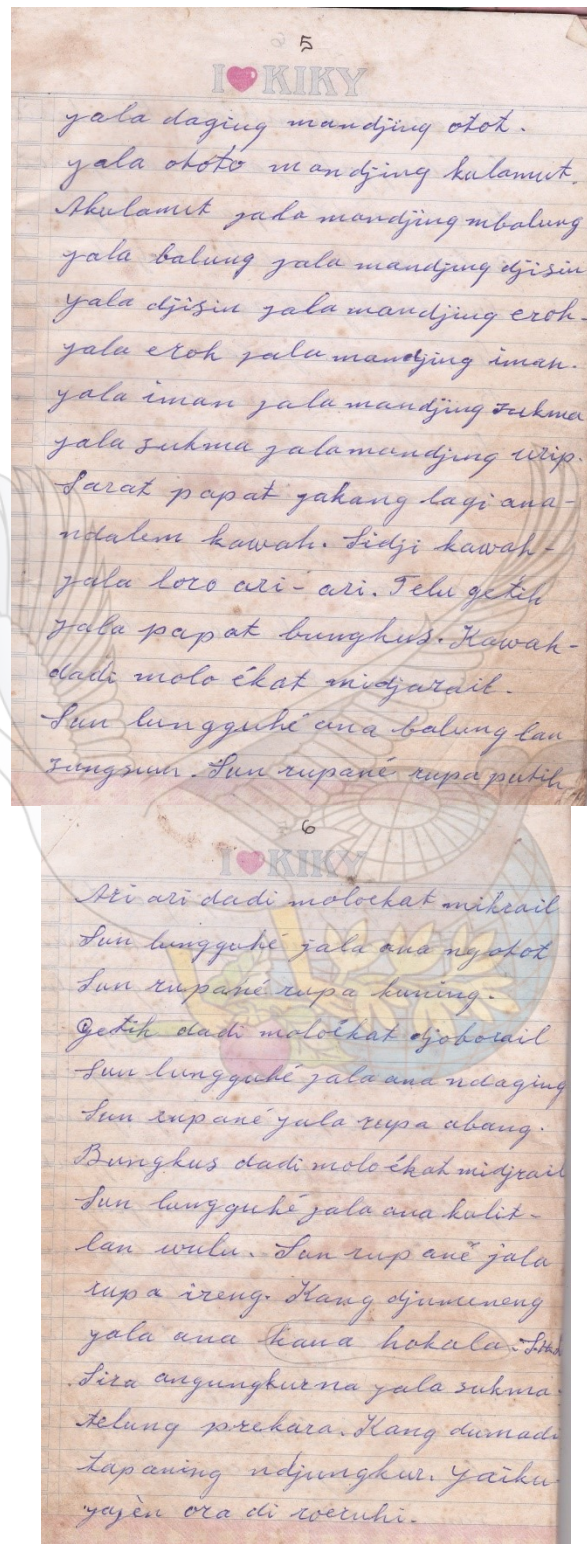 5
I KIKY
yala daging mandjing otot.
yala ototo mandjing kulamut.
Akulamut yala mandjing mbalung
yala balung yala mandjing djisin
yala djisin yala mandjing eroh.
yala eroh yala mandjing iman.
yala iman yala mandjing sukma
yala sukma yala mandjing urip.
Sarat papat yakang lagi ana-
ndalem kawah. Sidji kawah-
yala loro ari-ari. Telu getih
yala papat bungkus. Kawah-
dadi molo ékat midjarail.
Sun lungguhé ana balung lan
sungsun. Sun rupané rupa putih
6
I KIKY
Ari ari dadi moloekat mikrail
Sun lungguhé yala ana ng otot
Sun rupané rupa kuning.
Getih dadi moloékat djoborail
Sun lungguhé yala ana ndaging
Sun rupané yala rupa abang.
Bungkus dadi molo ékat midjrail
Sun lungguhé yala ana kulit-
lan wulu. Sun rupané yala
rupa ireng. Kang djumeneng
yala ana kana hokala.
Sira angungkurna yala sukma
telung prekara. Kang dumadi
tapaning ndjungkur. yaiku
yayèn ora di roeruhi.